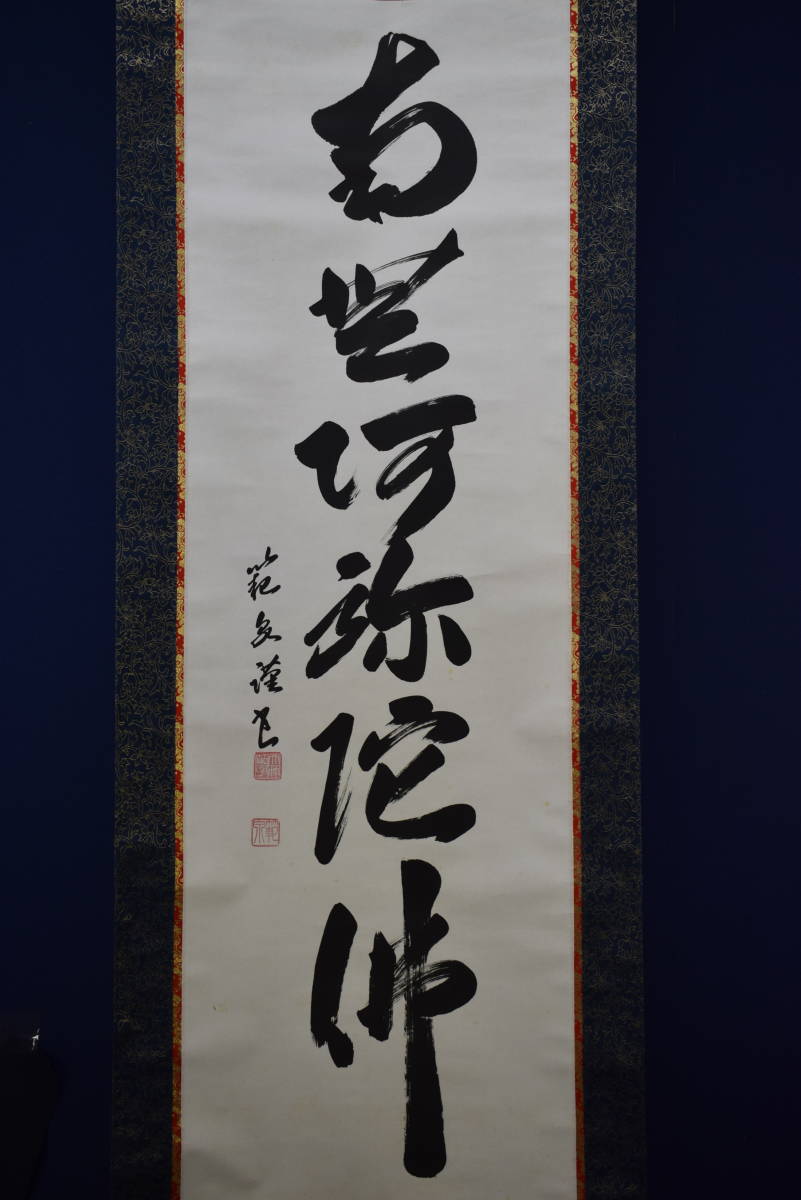 南無阿弥陀佛
範文謹書